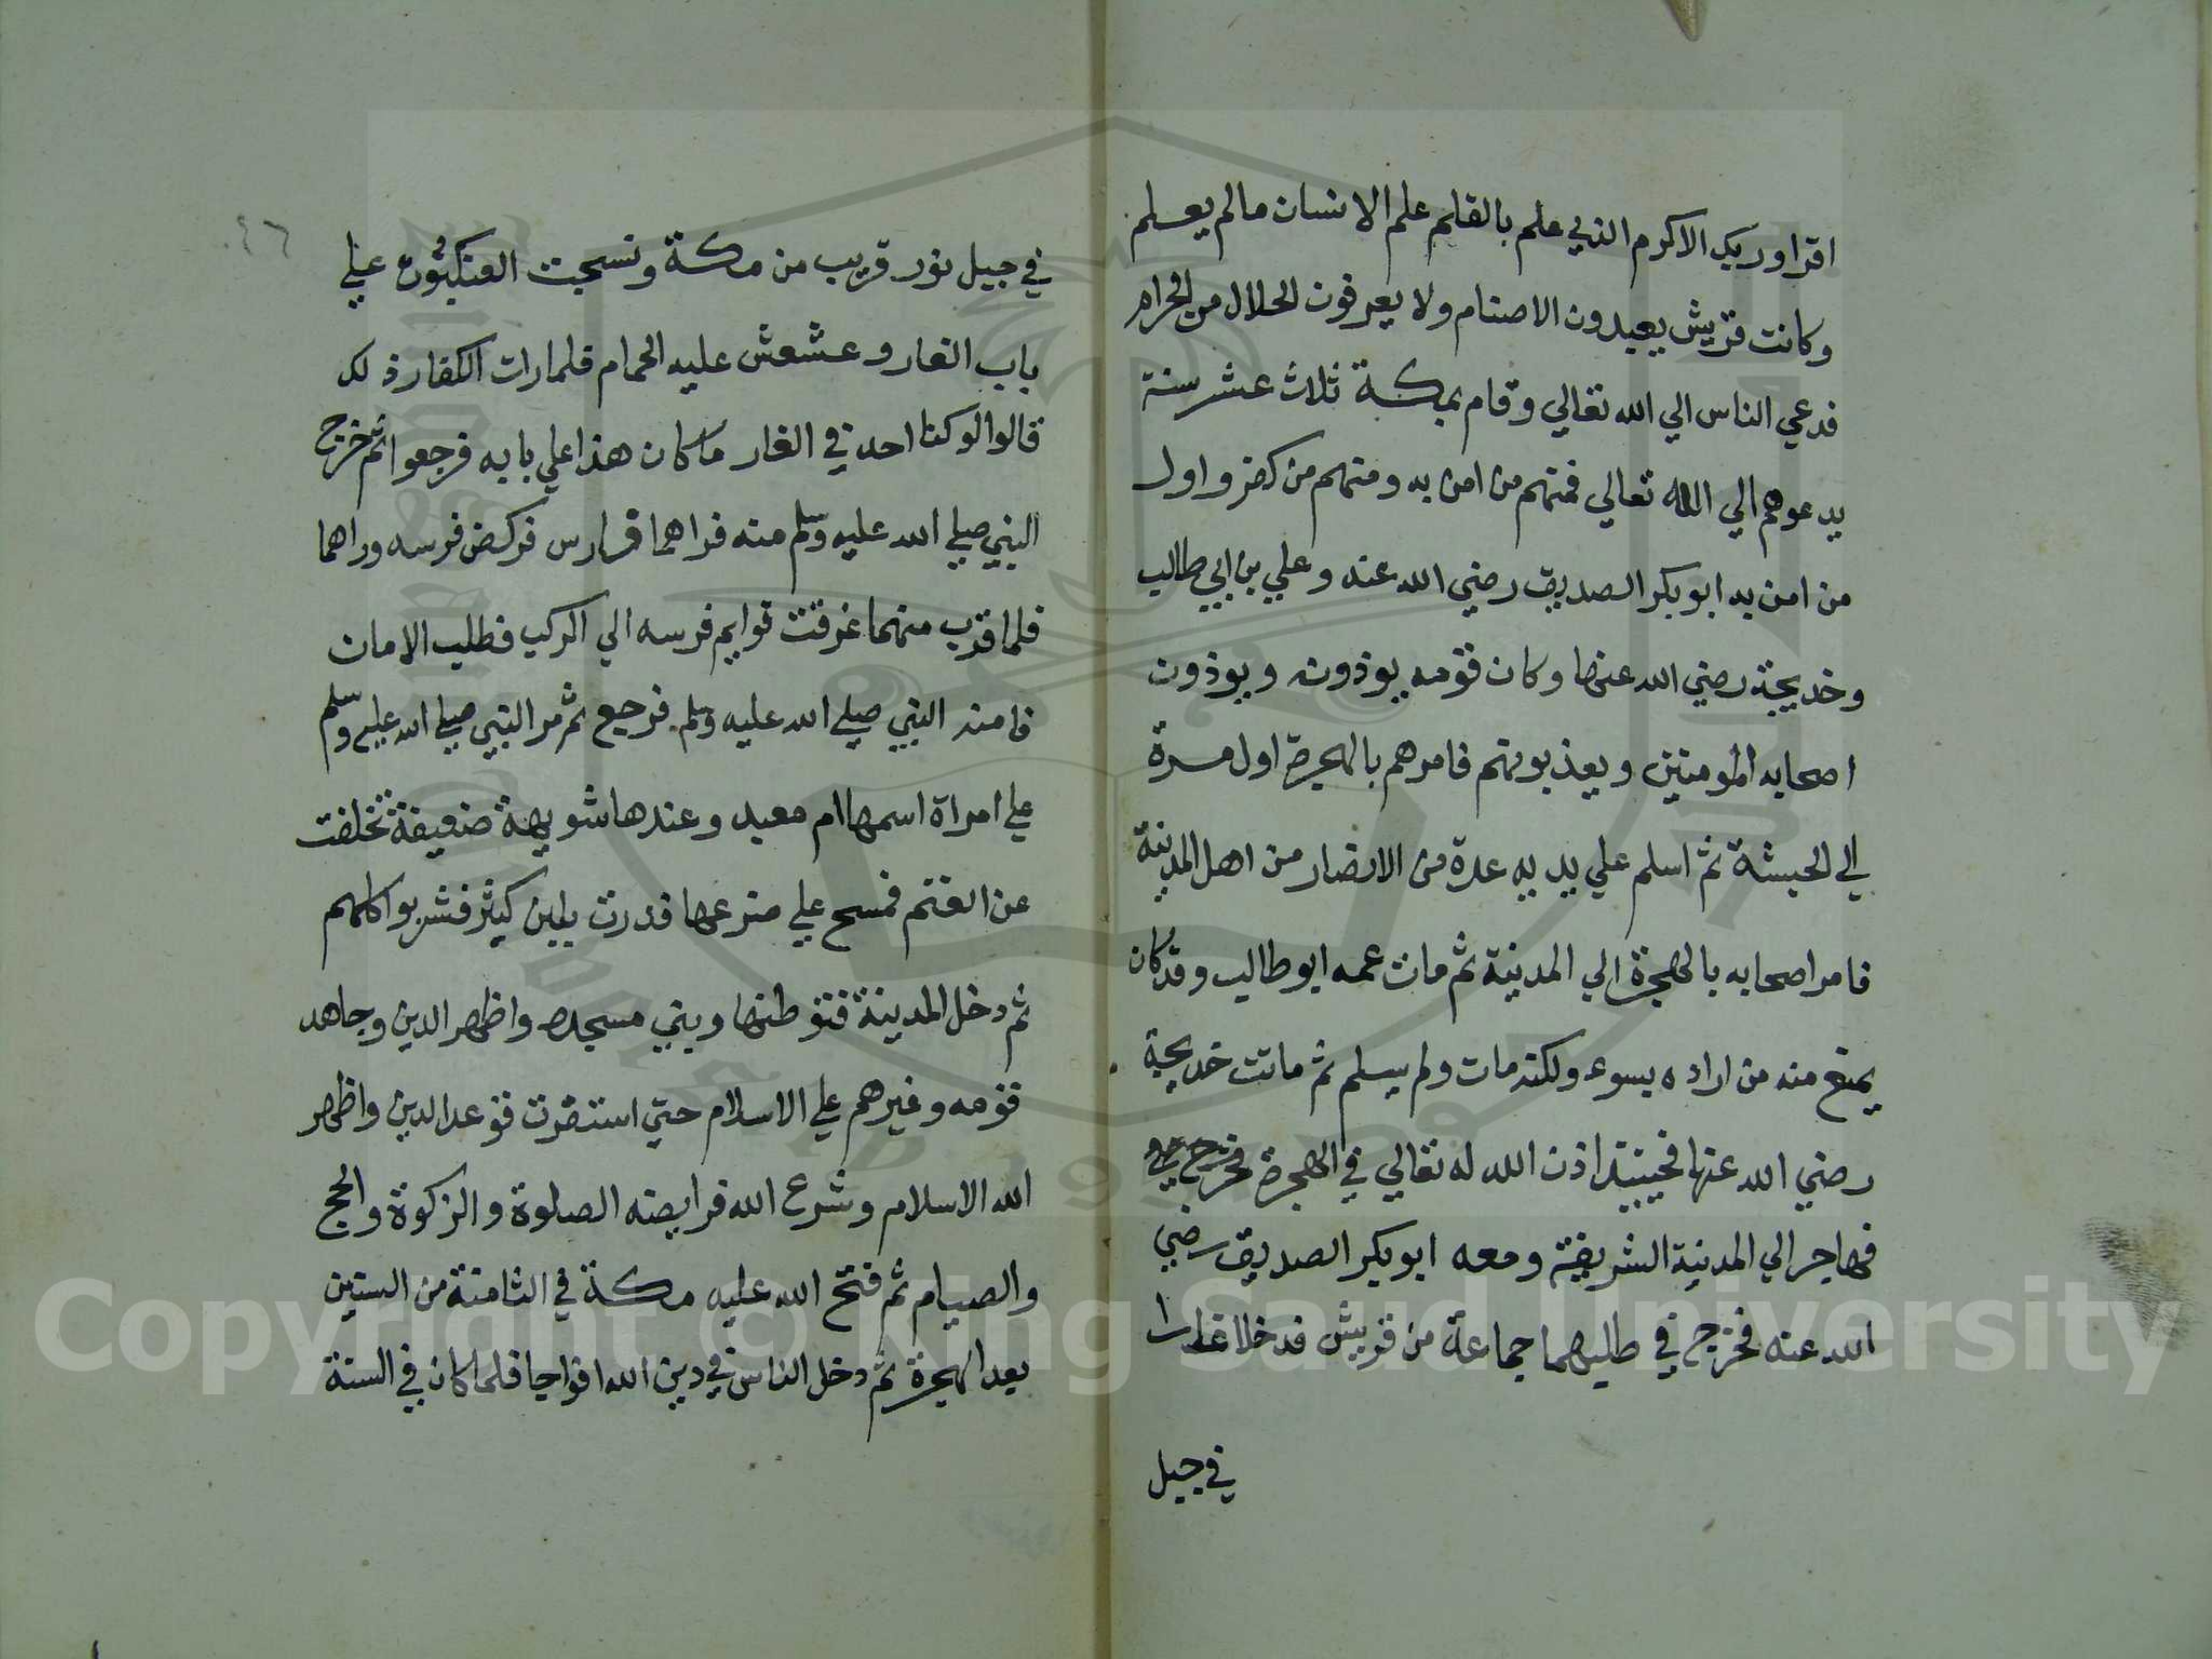 اقرا وربك الاكرم الذي علم بالقلم علم الانسان مالم يعلم
وكانت قريش يعبدون الاصنام ولا يعرفون الحلال من الحرام
فدعي الناس الي الله تعالي وقام بمكة ثلاث عشر سنة
يدعوهم الي الله تعالي فمنهم من امن به ومنهم من كفر واول
من امن به ابو بكر الصديق رضي الله عنه وعلي بن ابي طالب
وخديجة رضي الله عنها وكان قومه يوذونه ويوذون
اصحابه المومنين ويعذبونهم فامرهم بالهجرة اول مرة
الي الحبشة ثم اسلم علي يديه عدة من الانصار من اهل المدينة
فامر اصحابه بالهجرة الي المدينة ثم مات عمه ابو طالب وقد كان
يمنع منه من اراده بسوء ولكنه مات ولم يسلم ثم ماتت خديجة
رضي الله عنها فحينيذ اذن الله له تعالي في الهجرة فخرج
فهاجر الي المدينة الشريفة ومعه ابو بكر الصديق رضي
الله عنه فخرج في طلبهما جماعة من قريش فدخلا غارا
في جبل
٤٦
في جبل ثور قريب من مكة ونسجت العنكبوت علي
باب الغار وعشعش عليه الحمام فلما رات الكفار ذلك
قالوا لو كنا احد في الغار ما كان هذا علي بابه فرجعوا ثم خرج
النبي صلي الله عليه وسلم منه فراهما فارس فركض فرسه وراهما
فلما قرب منهما غرقت قوايم فرسه الي الركب فطلب الامان
فامنه النبي صلي الله عليه وسلم فرجع ثم مر النبي صلي الله عليه وسلم
علي امراة اسمها ام معبد وعندها شويهة ضعيفة تخلفت
عن الغنم فمسح علي ضرعها فدرت بلبن كثير فشربوا كلهم
ثم دخل المدينة فتوطنها وبني مسجده واظهر الدين وجاهد
قومه وغيرهم علي الاسلام حتي استقرت قوعد الدين واظهر
الله الاسلام وشرع الله فرايضه الصلوة والزكوة والحج
والصيام ثم فتح الله عليه مكة في الثامنة من السنين
بعد الهجرة ثم دخل الناس في دين الله افواجا فلما كان في السنة
Copyright © King Saud University